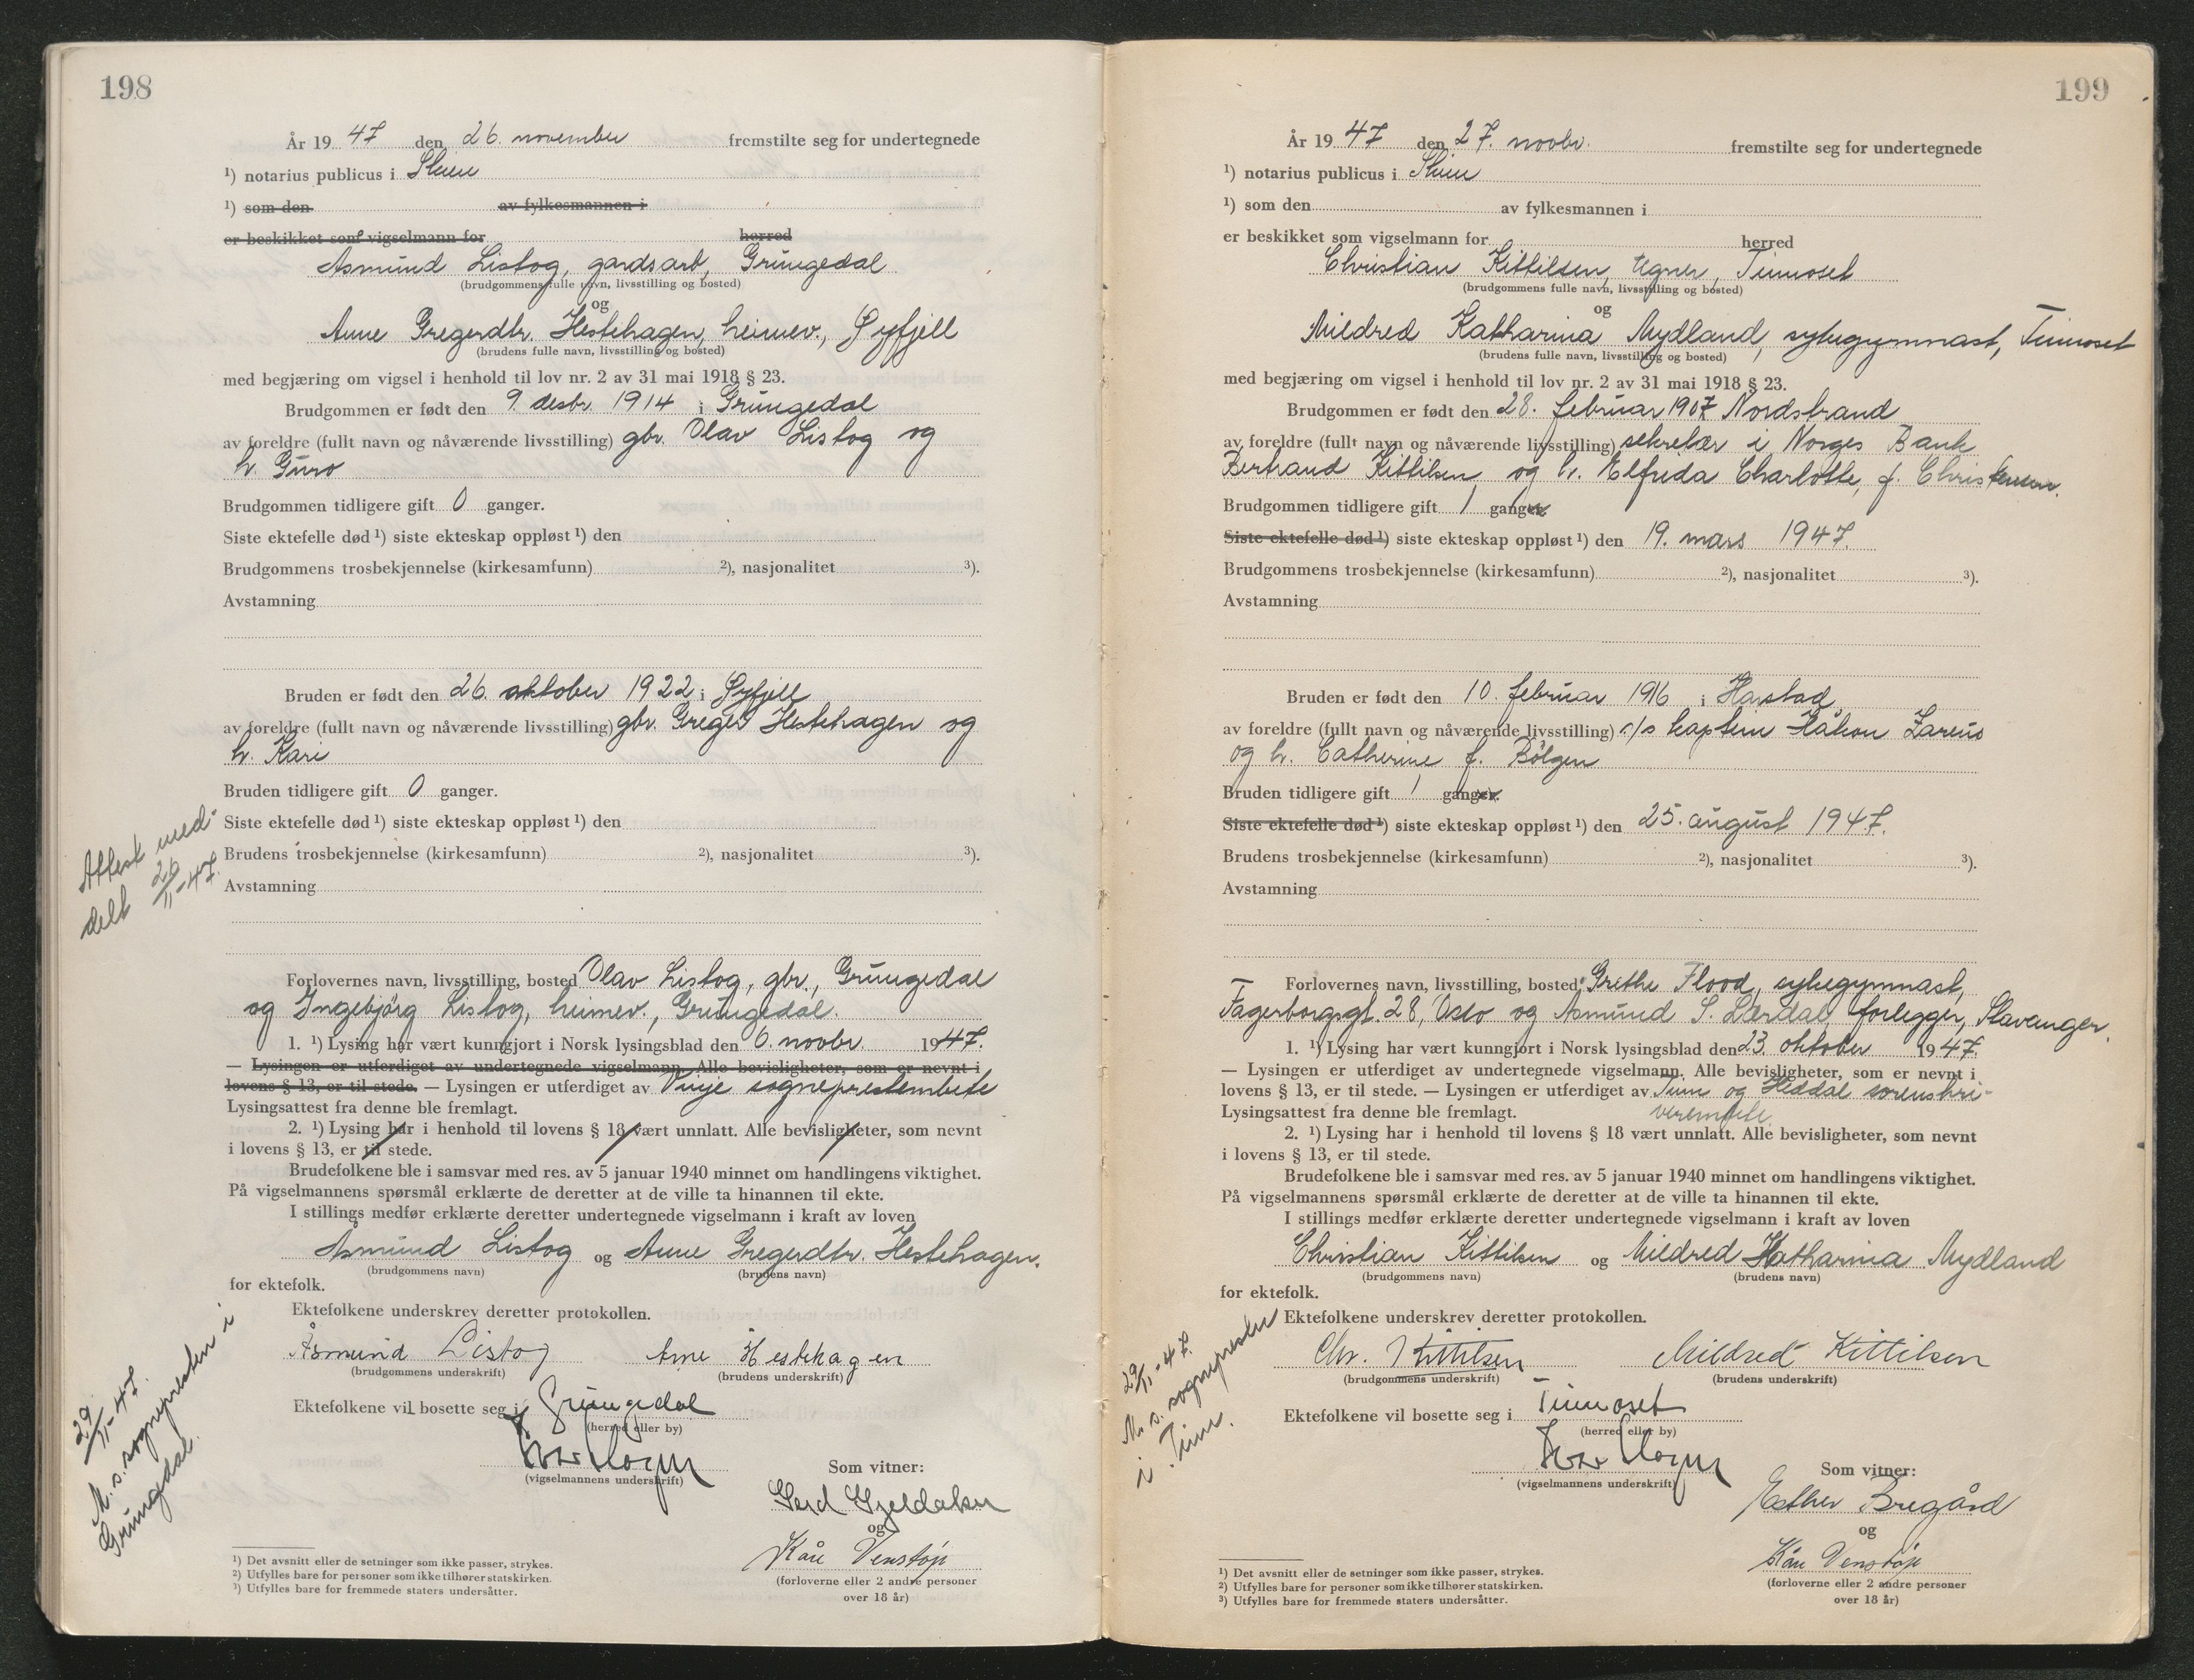 198
År 19 47 den 26. november fremstilte seg for undertegnede
¹) notarius publicus i Skien
¹) som den av fylkesmannen i
er beskikket som vigselmann for herred
Asmund Listog, gardsarb, Grungedal
(brudgommens fulle navn, livsstilling og bosted)
og
Anne Gregerdtr. Hestehagen, heimev., Gyfjell
(brudens fulle navn, livsstilling og bosted)
med begjæring om vigsel i henhold til lov nr. 2 av 31 mai 1918 § 23.
Brudgommen er født den 9. desbr. 1914 i Grungedal
av foreldre (fullt navn og nåværende livsstilling) gbr. Olav Listog og
h. Guro
Brudgommen tidligere gift 0 ganger.
Siste ektefelle død ¹) siste ekteskap oppløst ¹) den
Brudgommens trosbekjennelse (kirkesamfunn) ²), nasjonalitet ³).
Avstamning
Bruden er født den 26. oktober 1922 i Gyfjell
av foreldre (fullt navn og nåværende livsstilling) gbr. Greger Hestehagen og
h. Kari
Bruden tidligere gift 0 ganger.
Siste ektefelle død ¹) siste ekteskap oppløst ¹) den
Brudens trosbekjennelse (kirkesamfunn) ²), nasjonalitet ³).
Avstamning
Attest med-
delt 26/11-47.
Forlovernes navn, livsstilling, bosted Olav Listog, gbr., Grungedal
og Ingebjørg Listog, heimev., Grungedal.
1. ¹) Lysing har vært kunngjort i Norsk lysingsblad den 6. novbr. 1947.
— Lysingen er utferdiget av undertegnede vigselmann. Alle bevisligheter, som er nevnt i
lovens § 13, er til stede. — Lysingen er utferdiget av Vinje sogneprestembete
Lysingsattest fra denne ble fremlagt.
2. ¹) Lysing har i henhold til lovens § 18 vært unnlatt. Alle bevisligheter, som nevnt
i lovens § 13, er til stede.
Brudefolkene ble i samsvar med res. av 5 januar 1940 minnet om handlingens viktighet.
På vigselmannens spørsmål erklærte de deretter at de ville ta hinannen til ekte.
I stillings medfør erklærte deretter undertegnede vigselmann i kraft av loven
Asmund Listog og Anne Gregerdtr. Hestehagen.
(brudgommens navn) (brudens navn)
for ektefolk.
Ektefolkene underskrev deretter protokollen.
Åsmund Listog Anne Hestehagen
(brudgommens underskrift) (brudens underskrift)
Ektefolkene vil bosette seg i Grungedal
(herred eller by)
(vigselmannens underskrift)
29/11-47.
M. s. sognepresten i
Grungedal.
Som vitner:
Gerd Gjeldaker
og
Kåre Venstøp
(forloverne eller 2 andre personer
over 18 år)
¹) Det avsnitt eller de setninger som ikke passer, strykes.
²) Utfylles bare for personer som ikke tilhører statskirken.
³) Utfylles bare for fremmede staters undersåtter.
199
År 19 47 den 27. novbr. fremstilte seg for undertegnede
¹) notarius publicus i Skien
¹) som den av fylkesmannen i
er beskikket som vigselmann for herred
Christian Kittilsen, tegner, Tinnoset
(brudgommens fulle navn, livsstilling og bosted)
og
Mildred Katharina Mydland, sykegymnast, Tinnoset
(brudens fulle navn, livsstilling og bosted)
med begjæring om vigsel i henhold til lov nr. 2 av 31 mai 1918 § 23.
Brudgommen er født den 28. februar 1907 Nordstrand
av foreldre (fullt navn og nåværende livsstilling) sekretær i Norges Bank
Bertrand Kittilsen, og h. Elfreda Charlotte, f. Christensen.
Brudgommen tidligere gift 1 ganger
Siste ektefelle død ¹) siste ekteskap oppløst ¹) den 19. mars 1947.
Brudgommens trosbekjennelse (kirkesamfunn) ²), nasjonalitet ³).
Avstamning
Bruden er født den 10. februar 1916 i Harstad
av foreldre (fullt navn og nåværende livsstilling) s/s kaptein Håkon Zareus
og h. Catherine f. Bølgen
Bruden tidligere gift 1 ganger.
Siste ektefelle død ¹) siste ekteskap oppløst ¹) den 25. august 1947.
Brudens trosbekjennelse (kirkesamfunn) ²), nasjonalitet ³).
Avstamning
Forlovernes navn, livsstilling, bosted Grethe Flood, sykegymnast,
Fagerborggt. 28, Oslo og Asmund S. Lærdal, forlegger, Stavanger.
1. ¹) Lysing har vært kunngjort i Norsk lysingsblad den 23. oktober 1947.
— Lysingen er utferdiget av undertegnede vigselmann. Alle bevisligheter, som er nevnt i
lovens § 13, er til stede. — Lysingen er utferdiget av Tinn og Heddal sorenskri-
Lysingsattest fra denne ble fremlagt. verembete.
2. ¹) Lysing har i henhold til lovens § 18 vært unnlatt. Alle bevisligheter, som nevnt
i lovens § 13, er til stede.
Brudefolkene ble i samsvar med res. av 5 januar 1940 minnet om handlingens viktighet.
På vigselmannens spørsmål erklærte de deretter at de ville ta hinannen til ekte.
I stillings medfør erklærte deretter undertegnede vigselmann i kraft av loven
Christian Kittilsen og Mildred Katharina Mydland
(brudgommens navn) (brudens navn)
for ektefolk.
Ektefolkene underskrev deretter protokollen.
Chr. Kittilsen Mildred Kittilsen
(brudgommens underskrift) (brudens underskrift)
Ektefolkene vil bosette seg i Tinnoset
(herred eller by)
(vigselmannens underskrift)
29/11-47.
M. s. sognepresten
i Tinn.
Som vitner:
Esther Bregård
og
Kåre Venstøp
(forloverne eller 2 andre personer
over 18 år)
¹) Det avsnitt eller de setninger som ikke passer, strykes.
²) Utfylles bare for personer som ikke tilhører statskirken.
³) Utfylles bare for fremmede staters undersåtter.